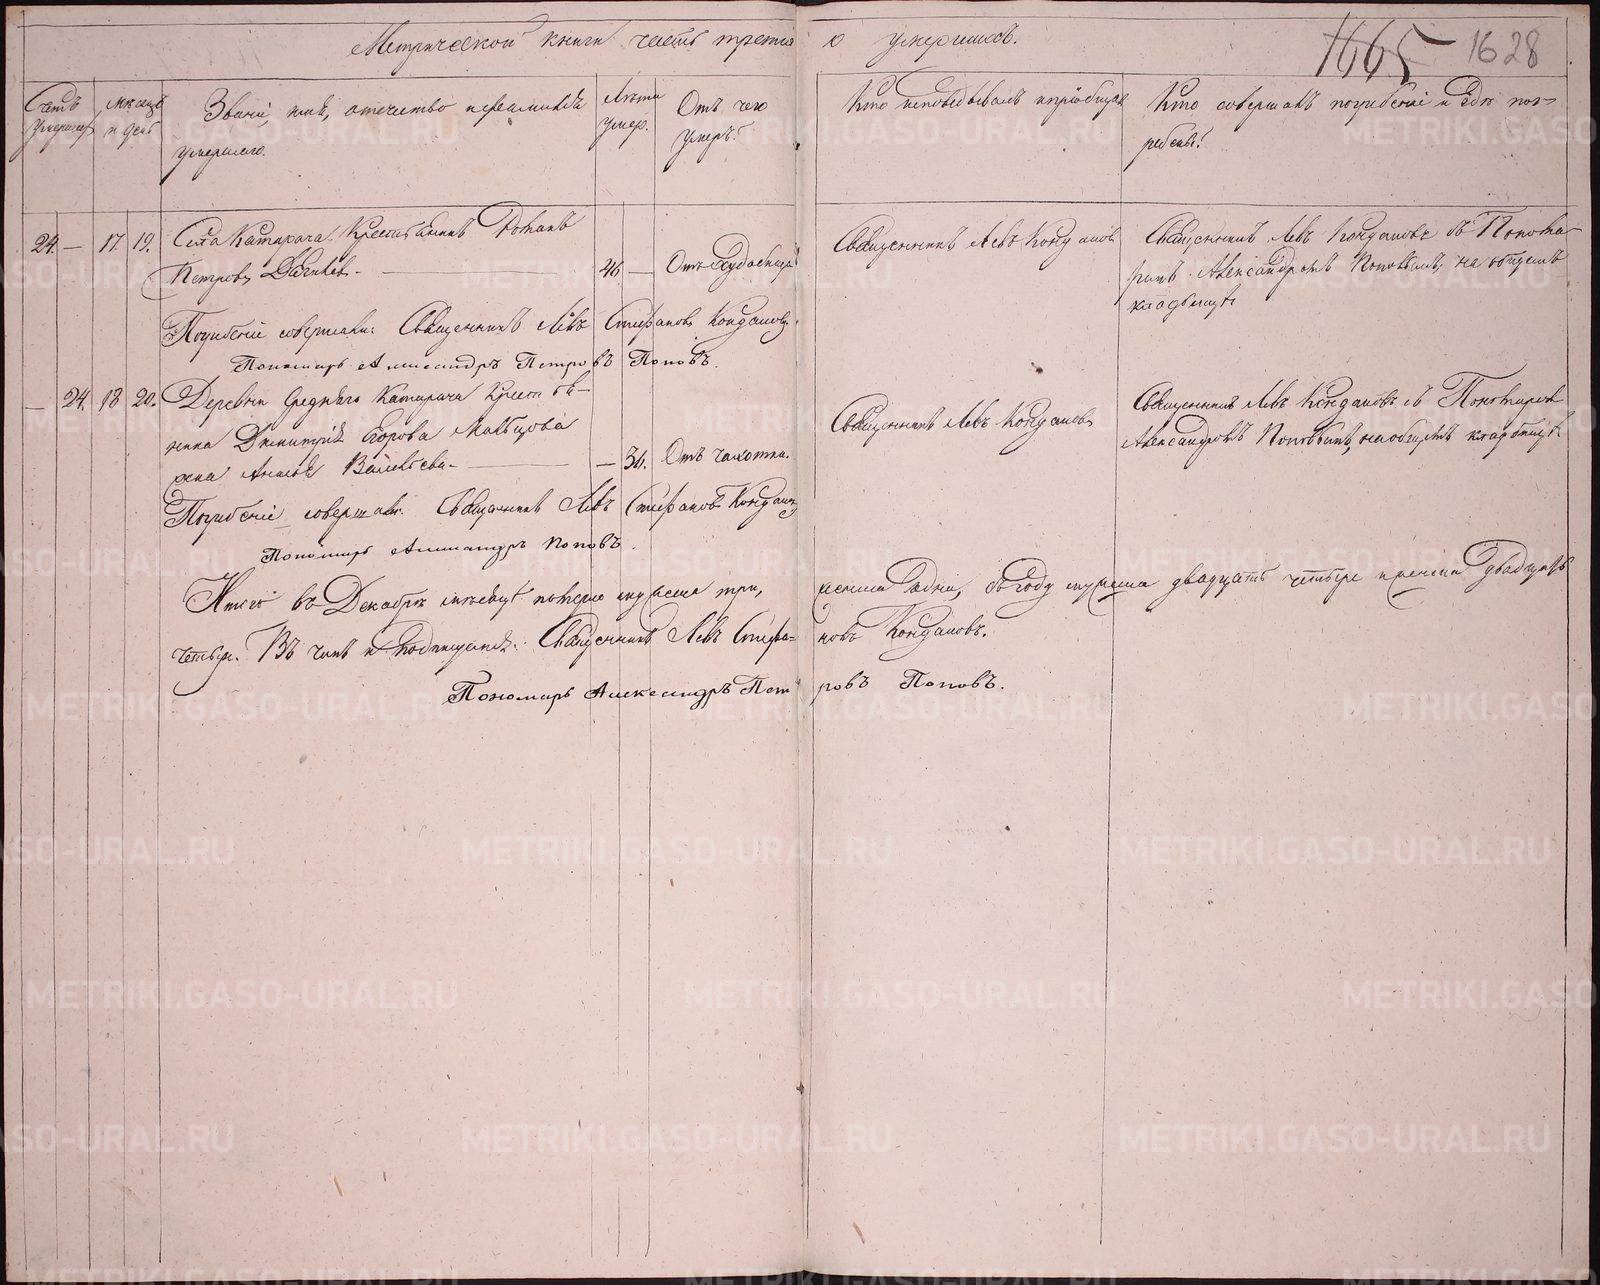 Метрической книги часть третья о умершихъ.
1665 1628
Счетъ умершихъ
Месяцъ и день
Званіе, имя, отечество и фамилія умершаго.
Лета умер.
Отъ чего умеръ.
Кто исповедывалъ и пріобщалъ
Кто совершалъ погребеніе и где погребены.
24. — 17. 19. Села Катарача Крестьянинъ Романъ
Петровъ — 46 — Отъ
Священникъ Левъ Кондаковъ
Священникъ Левъ Кондаковъ съ Понома-
ремъ Александромъ Поповымъ, на общемъ
кладбище
Погребеніе совершали: Священникъ Левъ Стефановъ Кондаковъ.
Пономарь Александръ Петровъ Поповъ.
— 24. 18 20. Деревни Средняго Катарача Крестья-
нина Димитрія Егорова Мальцова
жена Васильева — — 34. Отъ чахотки.
Священникъ Левъ Кондаковъ
Священникъ Левъ Кондаковъ съ Пономаремъ
Александромъ Поповымъ, на общемъ кладбище
Погребеніе совершали: Священникъ Левъ Стефановъ Кондаковъ
Пономарь Александръ Поповъ.
Итого въ Декабре месяце померло мужеска три, женска одна, въ году мужеска двадцать четыре и женска двадцать
четыре. Въ чемъ и подписуемся: Священникъ Левъ Стефановъ Кондаковъ.
Пономарь Александръ Петровъ Поповъ.
METRIKI.GASO-URAL.RU